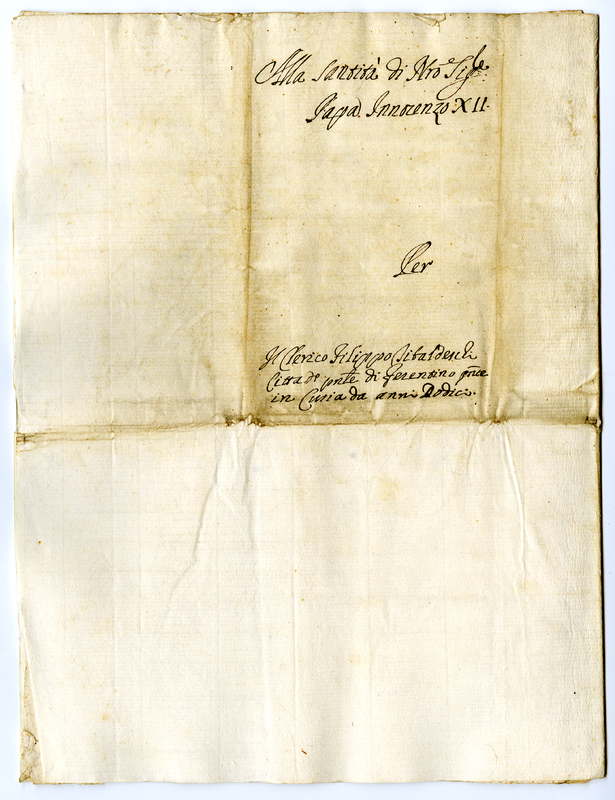 Alla Santità di Nro Sigre
Papa Innocenzo XII.
Per
Il Clerico Filippo Sibaldeschi
Cittad.o di Ferentino
in Curia da anni Dodici.